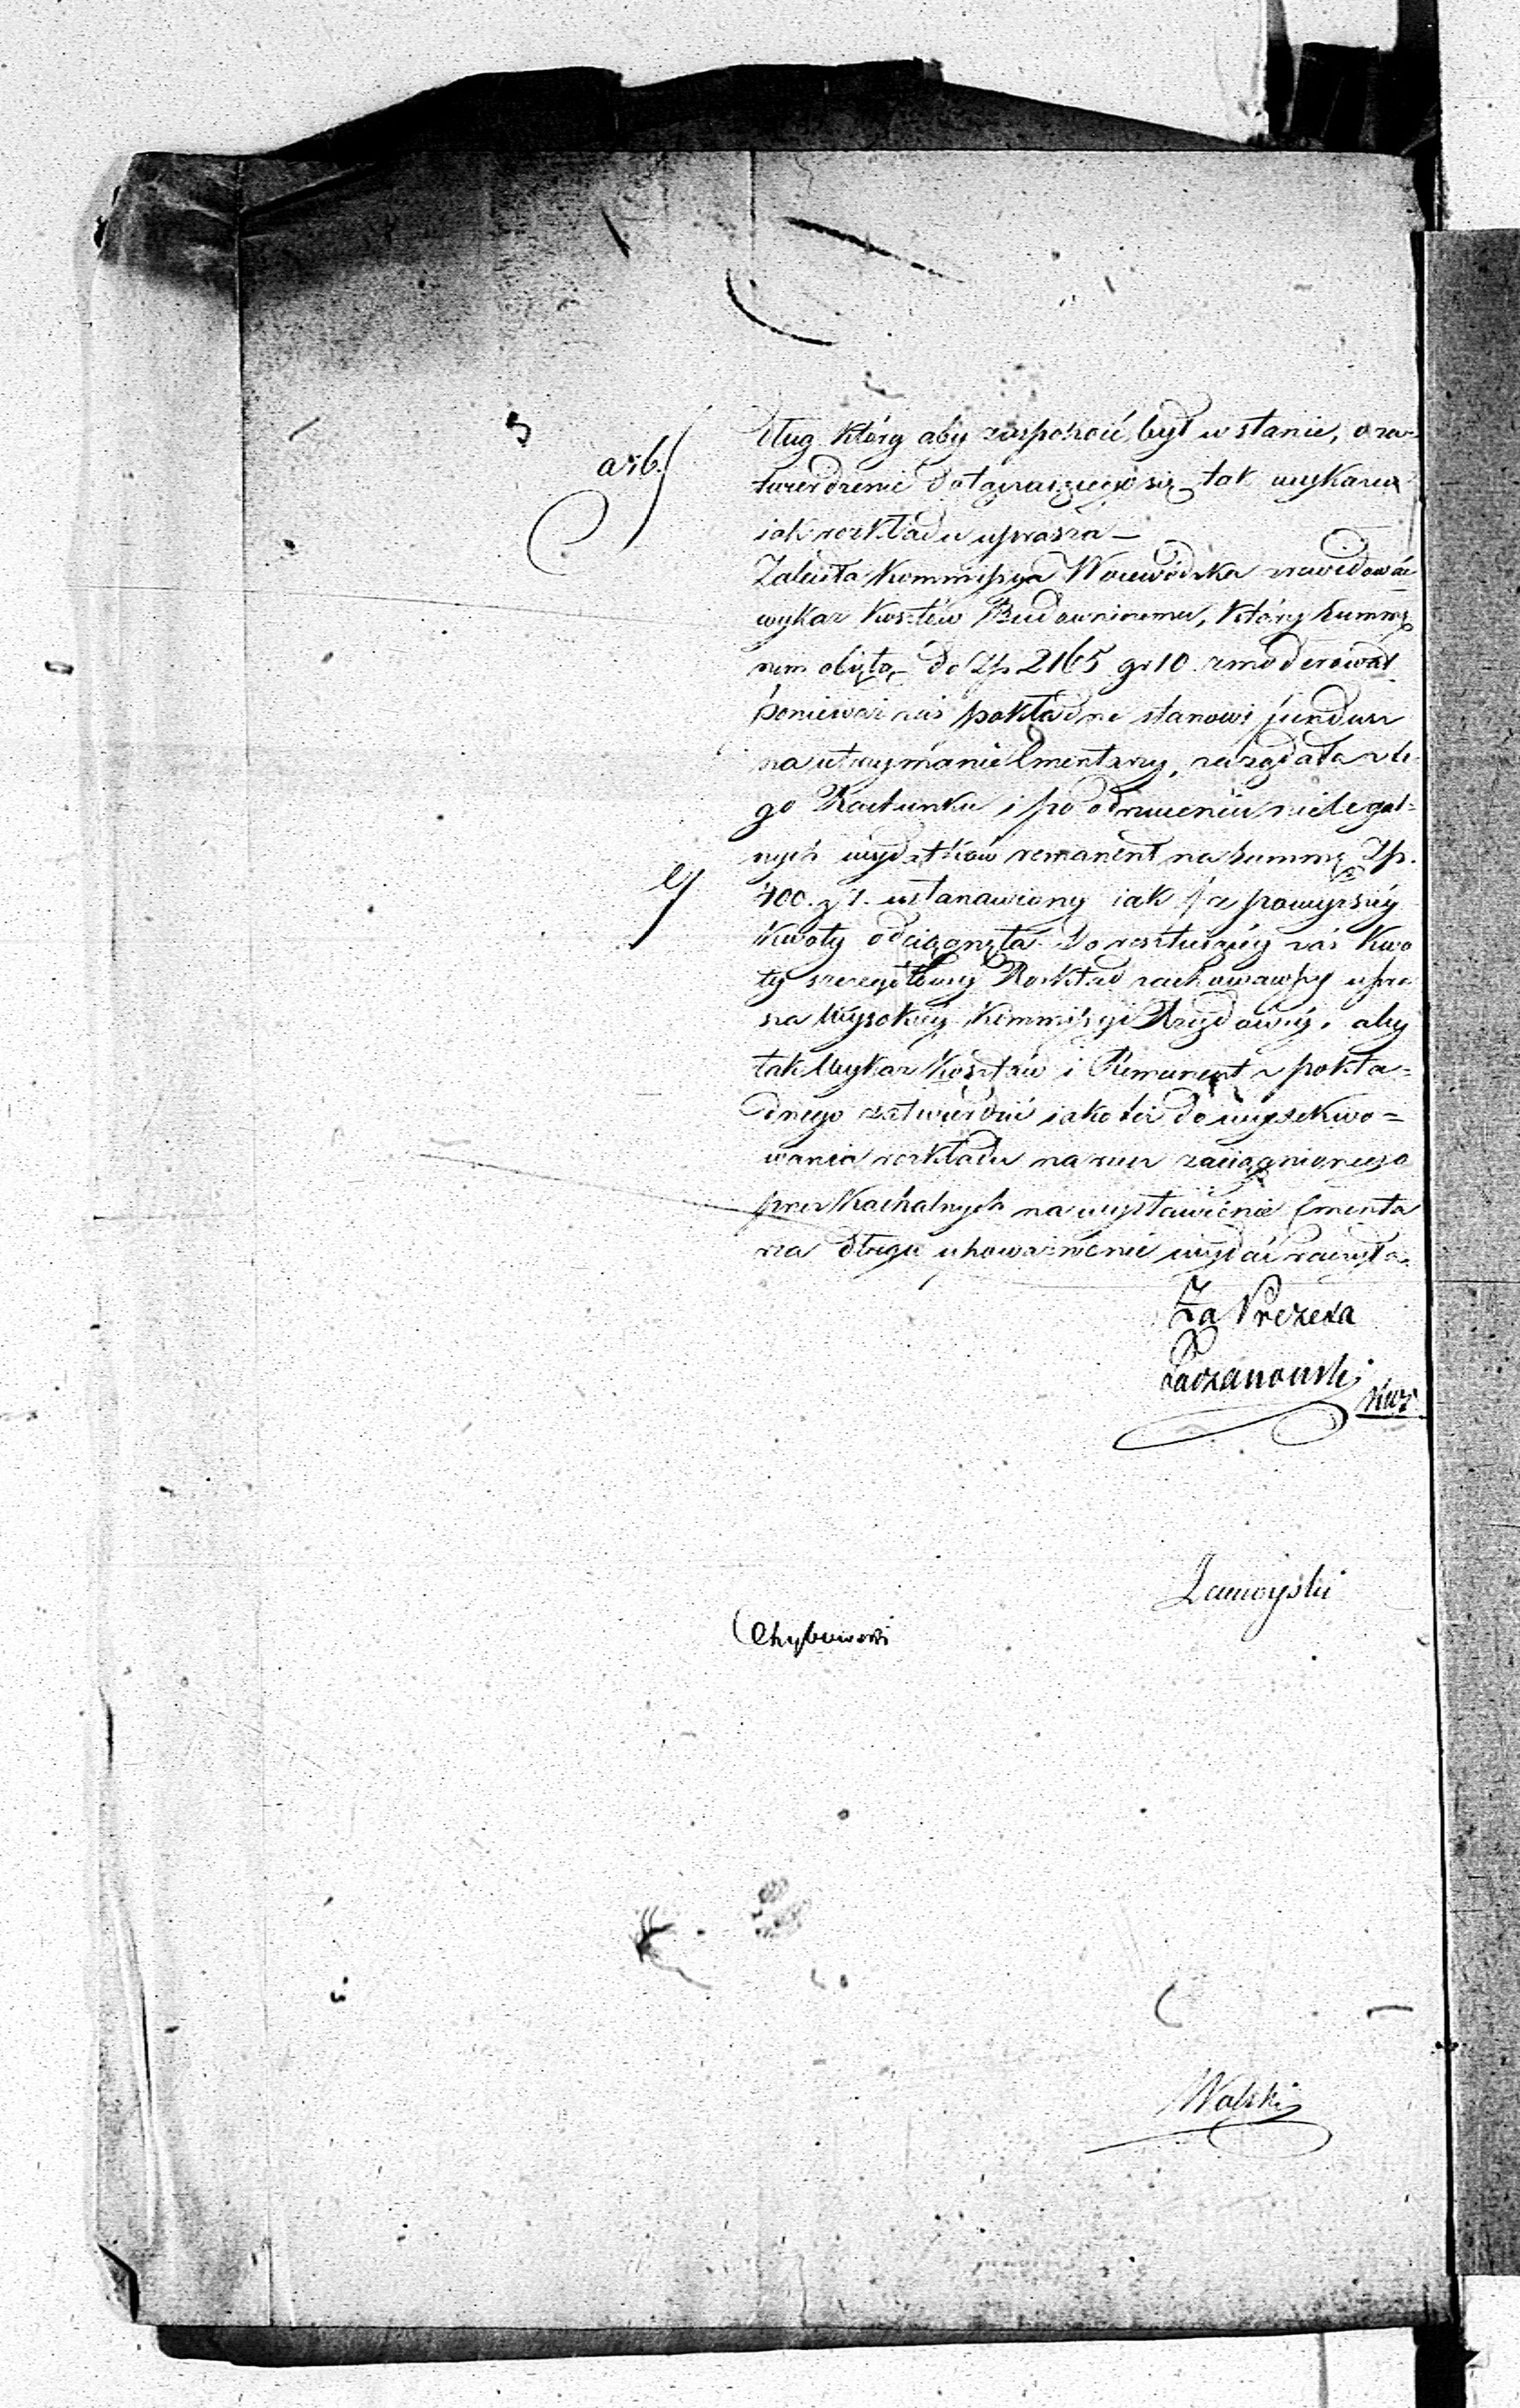 a et b
dług który aby zaspokoić był w stanie, o za-
twierdzenie dołączającego się tak wykazu
jak rozkładu uprasza —
Zaleciła Kommissya Woiewódzka zrewidować
wykaz kosztów Budowniczemu, który Summę
nim objętą do Zp 2165 gr 10 zmoderował
ponieważ zaś pokładne stanowi fundusz
na utrzymanie Cmentarzy, zażądała z te-
go Rachunku i po odrzuceniu nielegal=
nych wydatków remanent na Summę Zp.
c/
400. g 1. ustanowiony iak powyższey
kwoty odciągnęła. Do resztuiącey zaś Kwo
ty szczegółowy Rozkład zachowawszy upra
sza Wysokiey Kommissyi Rządowey, aby
tak Wykaz Kosztów i Remanent z pokła=
dnego zatwierdzić iako też do wyexekwo=
wania rozkładu na rzecz zaciągnionego
przez Kachalnych na wystawienie Cmenta
rza długu upoważnienie wydać raczyła.
Za Prezesa
Zamoyski
Chybowski
Walski